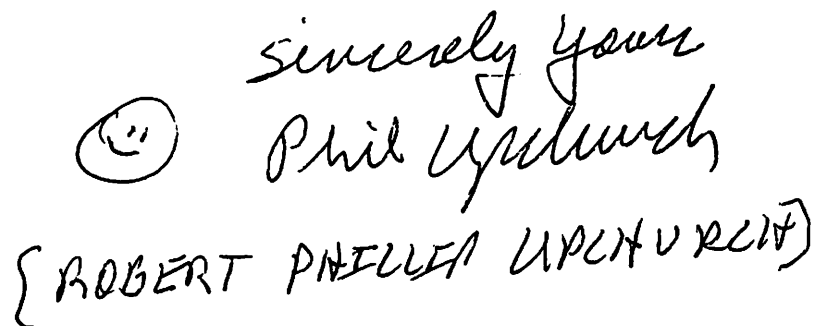 sincerely yours
Phil Upchurch
{ROBERT PHILLIP UPCHURCH}